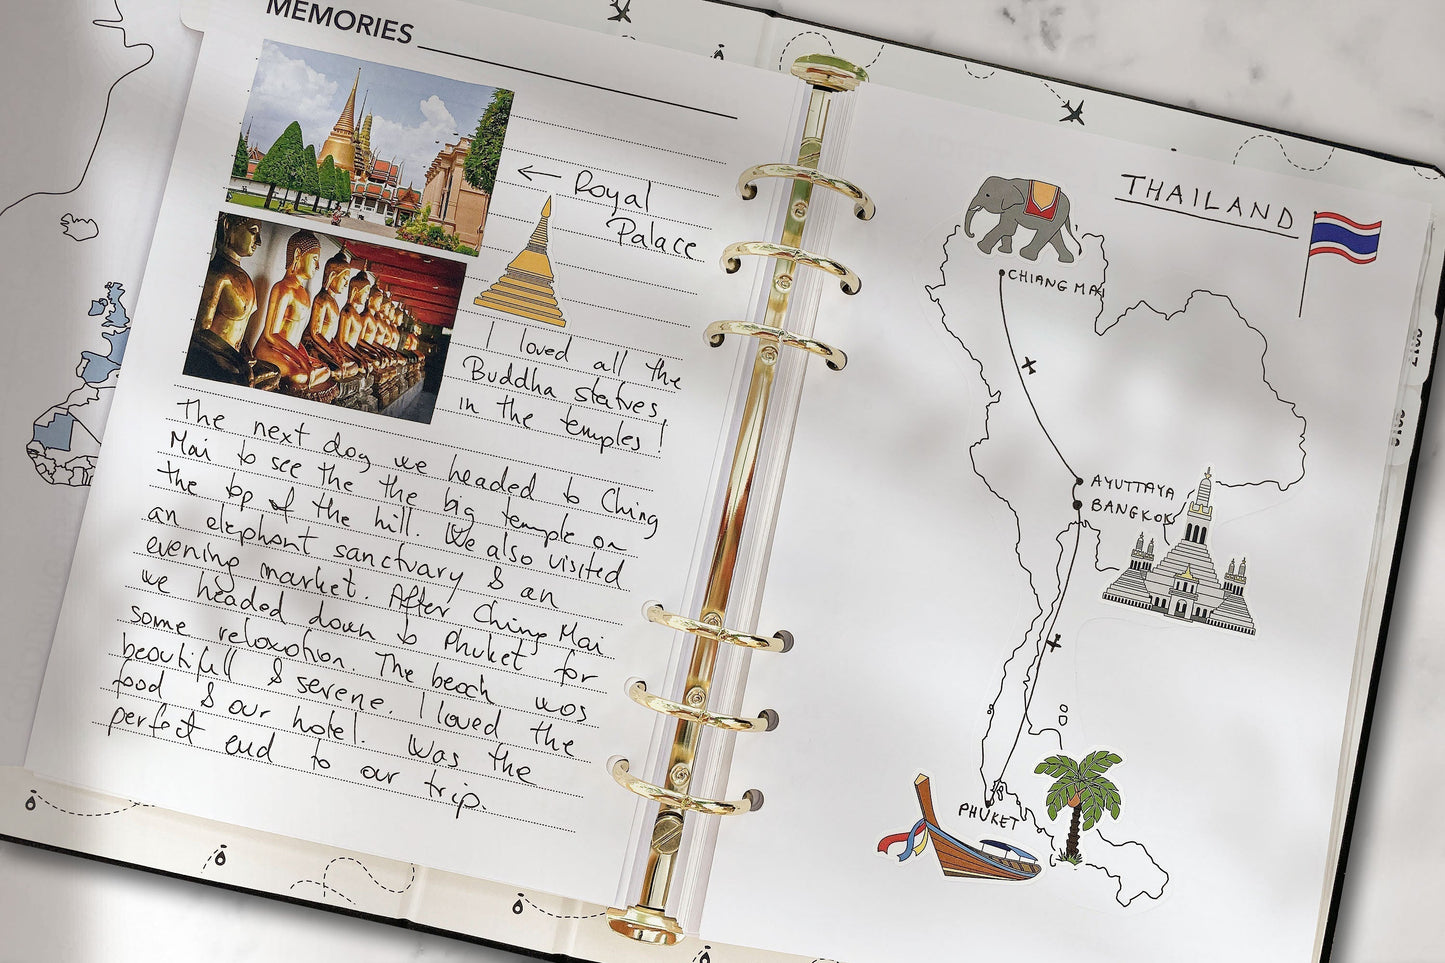 MEMORIES
← Royal
Palace
I loved all the
Buddha statues,
in the temples!
The next day we headed to Ching
Mai to see the the big temple on
the top of the hill. We also visited
an elephant sanctuary & an
evening market. After Ching Mai
we headed down to Phuket for
some relaxation. The beach was
beautifull & serene. I loved the
food & our hotel. Was the
perfect end to our trip.
THAILAND
CHIANG MAI
AYUTTAYA
BANGKOK
PHUKET